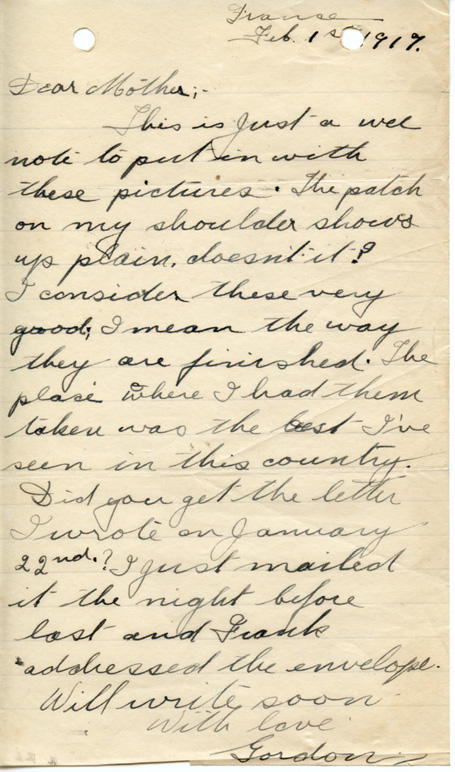 France
Feb. 1st, 1919.
Dear Mother;-
This is just a wee
note to put in with
these pictures. The patch
on my shoulder shows
up plain, doesn't it?
I consider these very
good; I mean the way
they are finished. The
place where I had them
taken was the best I've
seen in this country.
Did you get the letter
I wrote on January
22nd.? I just mailed
it the night before
last and Frank
addressed the envelope.
Will write soon
With love
Gordon